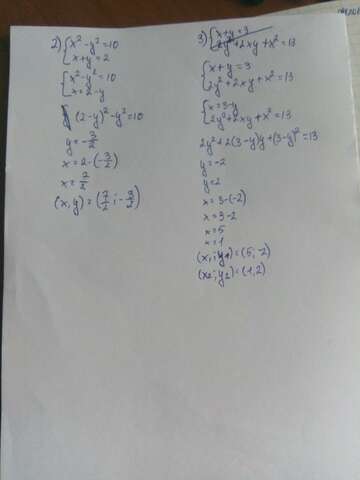 2) { x² - y² = 10
x + y = 2
{ x² - y² = 10
x = 2 - y
(2 - y)² - y² = 10
y = 3/2
x = 2 - (-3/2)
x = 7/2
(x, y) = (7/2 ; -3/2)
3) { x + y = 3
2y² + 2xy + x² = 13
{ x + y = 3
2y² + 2xy + x² = 13
{ x = 3 - y
2y² + 2xy + x² = 13
2y² + 2(3 - y)y + (3 - y)² = 13
y = -2
y = 2
x = 3 - (-2)
x = 3 - 2
x = 5
x = 1
(x₁; y₁) = (5, -2)
(x₂; y₂) = (1, 2)